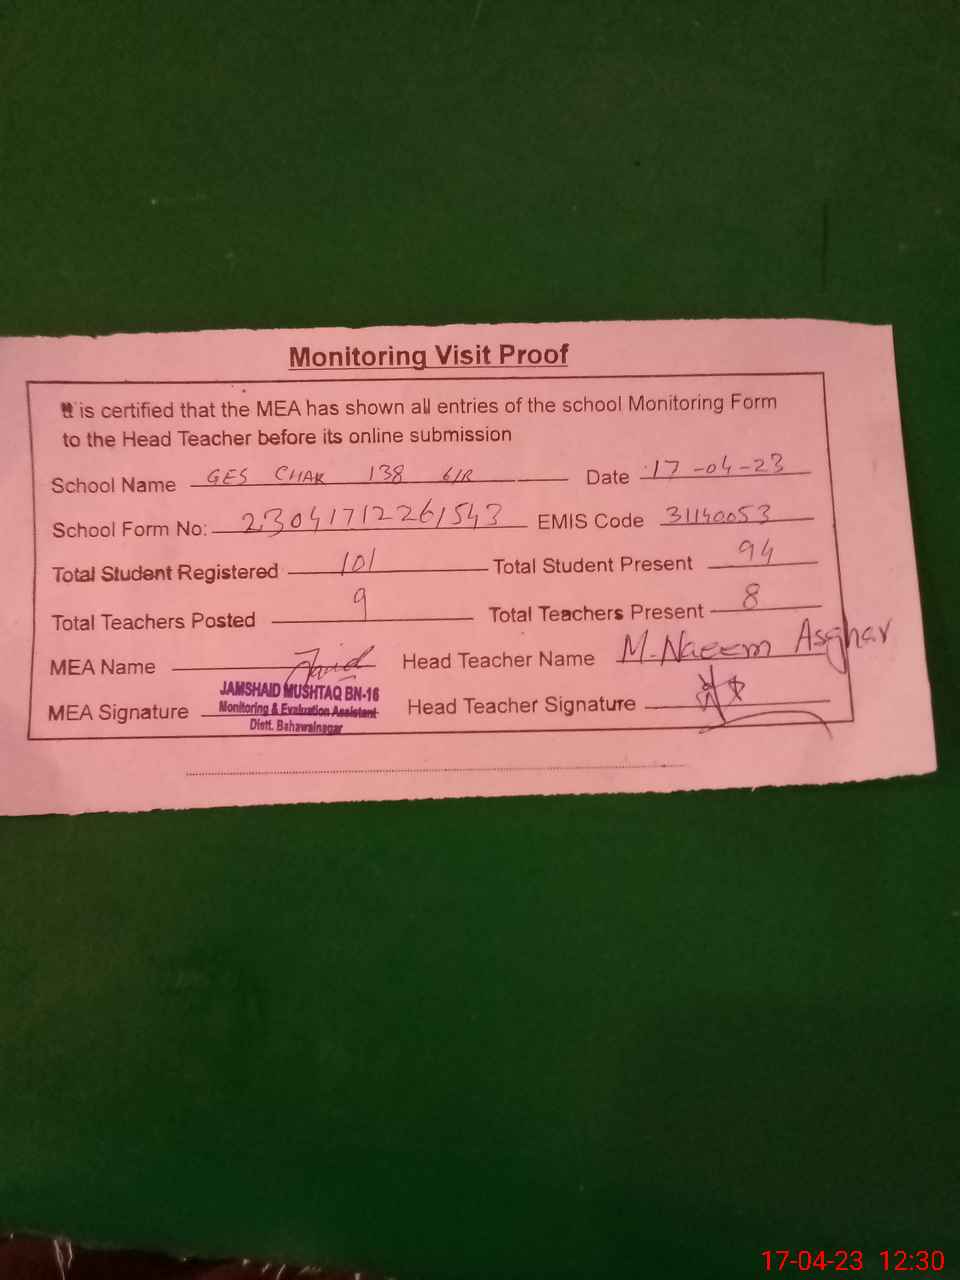 Monitoring Visit Proof
It is certified that the MEA has shown all entries of the school Monitoring Form
to the Head Teacher before its online submission
School Name GES CHAK 138 6/R Date 17-04-23
School Form No: 23041712261543 EMIS Code 31140053
Total Student Registered 101 Total Student Present 94
Total Teachers Posted 9 Total Teachers Present 8
MEA Name Head Teacher Name M.Naeem Asghar
JAMSHAID MUSHTAQ BN-16
MEA Signature Monitoring & Evaluation Assistant Head Teacher Signature
Distt. Bahawalnagar
17-04-23 12:30